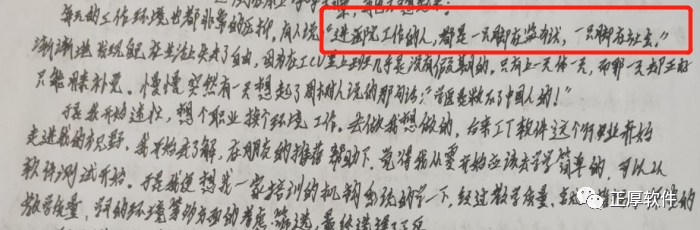 每天的工作环境也都非常的压抑，有人说“进医院工作的人，都是一只脚在监狱，一只脚在社会。”
渐渐地发现自己在生活上失去了自由，因为在ICU里上班几乎是没有假期的。只有上一天休一天，而那一天却正好
只能用来补觉。慢慢突然有一天想起了周树人说的那句话：“学医是救不了中国人的！”
于是我开始迷茫，想个职业换个环境工作。去做我想做的，后来IT软件这个行业开始
走进我的视野，我开始去了解，在朋友的推荐帮助下，觉得我从零开始应该去学学简单的，可以从
软件测试开始。于是我便想找一家培训的机构系统的学一下，经过教学质量、
教学质量、学习的环境等多方面的考虑、筛选，最终选择了正厚
正厚软件